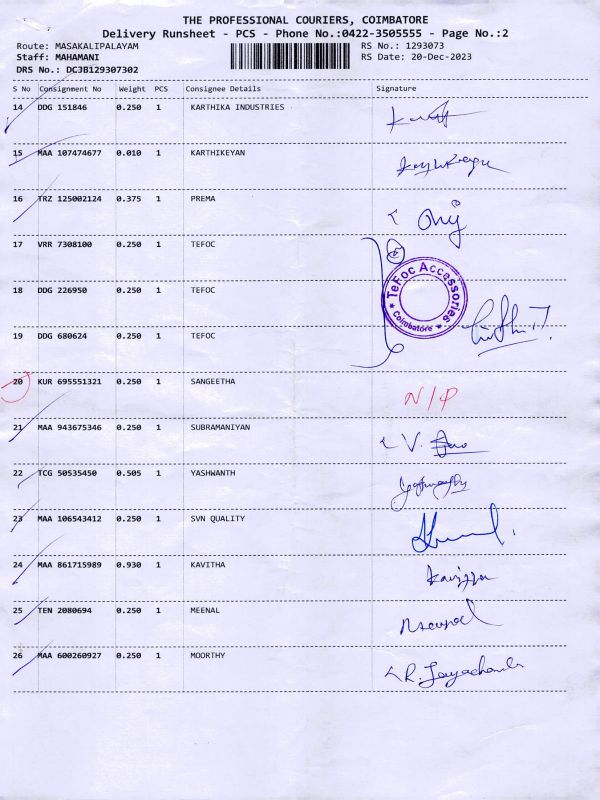 THE PROFESSIONAL COURIERS, COIMBATORE
Delivery Runsheet - PCS - Phone No.:0422-3505555 - Page No.:2
Route: MASAKALIPALAYAM RS No.: 1293073
Staff: MAHAMANI RS Date: 20-Dec-2023
DRS No.: DCJB129307302
S No Consignment No Weight PCS Consignee Details Signature
14 DDG 151846 0.250 1 KARTHIKA INDUSTRIES
15 MAA 107474677 0.010 1 KARTHIKEYAN
16 TRZ 125002124 0.375 1 PREMA
17 VRR 7308100 0.250 1 TEFOC
TeFoc Accessories
* Coimbatore *
18 DDG 226950 0.250 1 TEFOC
19 DDG 680624 0.250 1 TEFOC
20 KUR 695551321 0.250 1 SANGEETHA N/P
21 MAA 943675346 0.250 1 SUBRAMANIYAN
22 TCG 50535450 0.505 1 YASHWANTH
23 MAA 106543412 0.250 1 SVN QUALITY
24 MAA 861715989 0.930 1 KAVITHA
25 TEN 2080694 0.250 1 MEENAL
26 MAA 600260927 0.250 1 MOORTHY